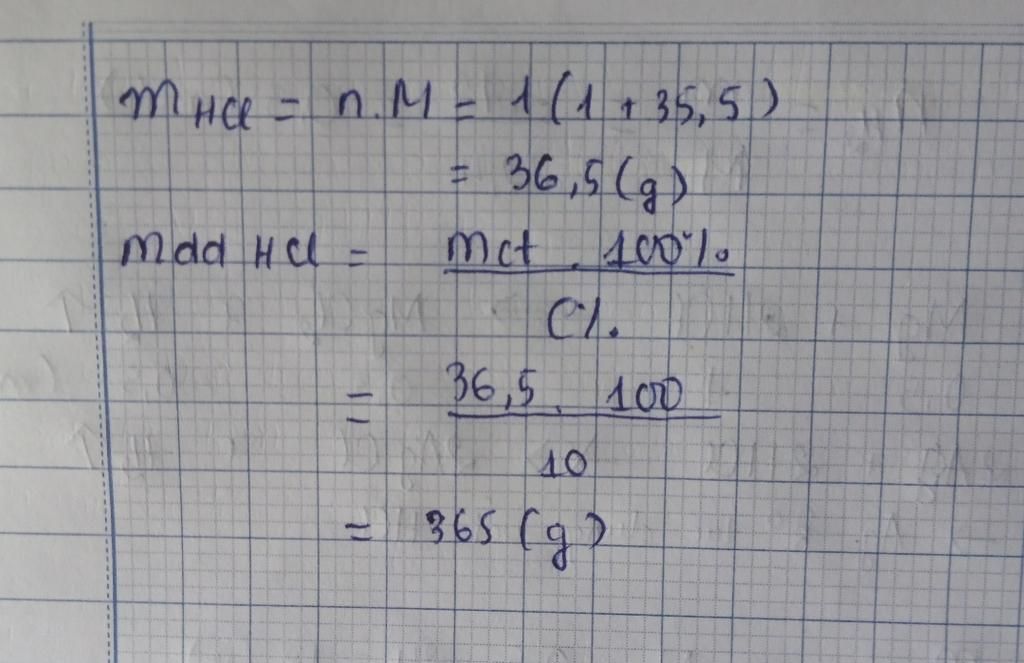 mHCl = n.M = 1(1 + 35,5)
= 36,5(g)
mdd HCl = mct . 100%
C%
= 36,5 . 100
10
= 365 (g)